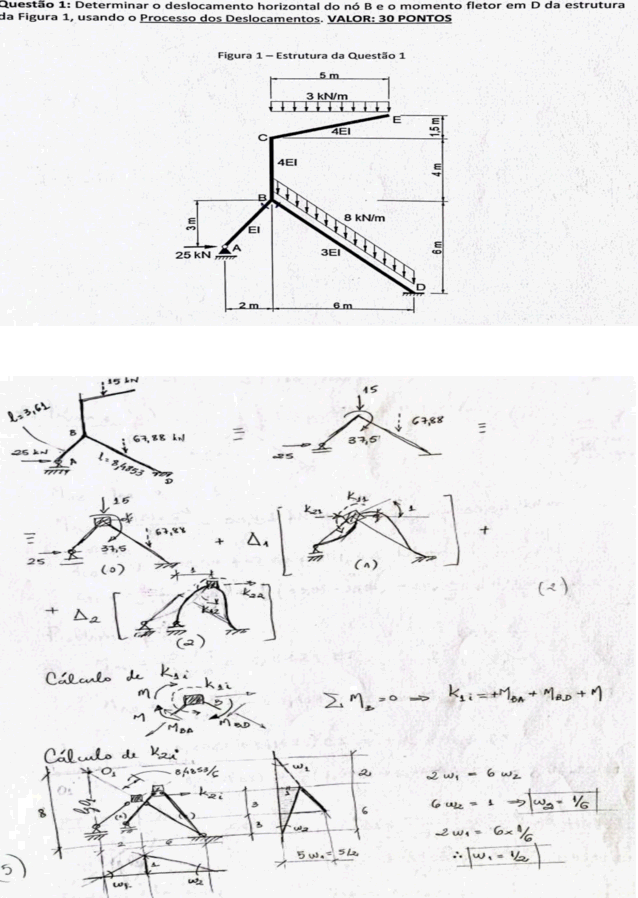 Questão 1: Determinar o deslocamento horizontal do nó B e o momento fletor em D da estrutura
da Figura 1, usando o Processo dos Deslocamentos. VALOR: 30 PONTOS
Figura 1 – Estrutura da Questão 1
5 m
3 kN/m
E
4EI
1,5 m
C
4EI
4 m
B
8 kN/m
3 m
EI
3EI
6 m
25 kN
A
D
2 m
6 m
15 kN
l=3,61
B
67,88 kN
25 kN
A
l=8,4853
D
≡
15
67,88
37,5
25
≡
≡
15
67,88
37,5
25
(0)
+ Δ1
K11
K21
1
(1)
+
+ Δ2
1
K22
K12
(2)
(2)
Cálculo de K1i
K1i
M
M
MBA
MBD
∑ M = 0 ⇒ K1i = +MBA + MBD + M
Cálculo de K2i
O1
8,4853/6
K2i
8
2
6
3
3
1
ω1
ω2
ω1
ω2
2
6
5ω1 = 5/2
2ω1 = 6ω2
6ω2 = 1 ⇒ ω2 = 1/6
2ω1 = 6×1/6
∴ ω1 = 1/2
5)